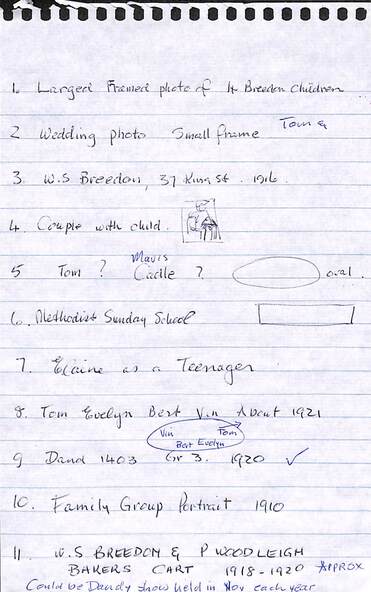 1. Larged Framed photo of 4 Breedon Children
2 Wedding photo Small frame Tom &
3. W.S Breedon, 37 King St. 1916.
4 Couple with child.
Mavis
5 Tom ? Cadle ? oval.
6. Methodist Sunday School
7. Elaine as a Teenager
8. Tom Evelyn Bert Vin About 1921
Vin Tom
Bert Evelyn
9 Dand 1403 Gr 3. 1920 ✓
10. Family Group Portrait 1910
11. W.S BREEDON & P WOODLEIGH
BAKERS CART 1918-1920 APPROX
Could be Dandy show held in Nov each year